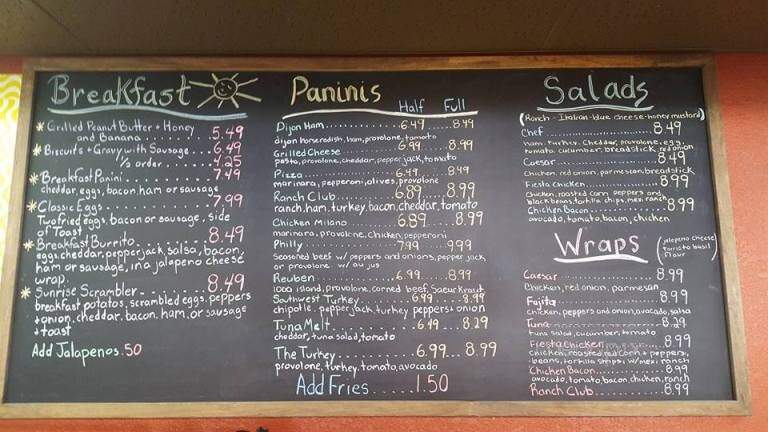 Breakfast
* Grilled Peanut Butter + Honey
and Banana ... 5.49
* Biscuits + Gravy with Sausage ... 6.49
1/2 order ... 4.25
* Breakfast Panini ... 7.49
cheddar, eggs, bacon, ham or sausage
* Classic Eggs ... 7.99
Two fried eggs, bacon or sausage, side
of Toast
* Breakfast Burrito ... 8.49
eggs, cheddar, pepper jack, salsa, bacon,
ham or sausage, in a jalapeno cheese
wrap.
* Sunrise Scrambler ... 8.49
breakfast potatos, scrambled eggs, peppers
+ onion, cheddar, bacon, ham, or sausage
+ toast
Add Jalapenos .50
Paninis
Half Full
Dijon Ham ... 6.49 ... 8.49
dijon horseradish, ham, provolone, tomato
Grilled Cheese ... 6.99 ... 8.99
pesto, provolone, cheddar, pepper jack, tomato
Pizza ... 6.49 ... 8.49
marinara, pepperoni, olives, provolone
Ranch Club ... 6.89 ... 8.99
ranch, ham, turkey, bacon, cheddar, tomato
Chicken Milano ... 6.89 ... 8.99
marinara, provolone, chicken, pepperoni
Philly ... 7.99 ... 9.99
Seasoned beef w/ peppers and onions, pepper jack
or provolone w/ au jus
Reuben ... 6.99 ... 8.99
1000 island, provolone, corned beef, Sauer Kraut
Southwest Turkey ... 6.99 ... 8.99
chipotle, pepper jack, turkey, peppers + onion
Tuna Melt ... 6.49 ... 8.29
cheddar, tuna salad, tomato
The Turkey ... 6.99 ... 8.99
provolone, turkey, tomato, avocado
Add Fries ... 1.50
Salads
(Ranch - Italian - blue cheese - honey mustard)
Chef ... 8.49
ham, turkey, cheddar, provolone, egg,
tomato, cucumber, breadstick, red onion
Caesar ... 8.49
Chicken, red onion, parmesan, breadstick
Fiesta Chicken ... 8.99
Chicken, roasted corn, peppers and
black beans, tortilla chips, mex. ranch
Chicken Bacon ... 8.99
avocado, tomato, bacon, chicken
Wraps
(jalapeno cheese
tomato basil
flour)
Caesar ... 8.99
Chicken, red onion, parmesan
Fajita ... 8.99
Chicken, peppers and onion, avocado, salsa
Tuna ... 8.29
tuna salad, cucumber, tomato
Fiesta Chicken ... 8.99
chicken, roasted red corn + peppers,
beans, tortilla strips, w/ mexi ranch
Chicken Bacon ... 8.99
avocado, tomato, bacon, chicken, ranch
Ranch Club ... 8.99